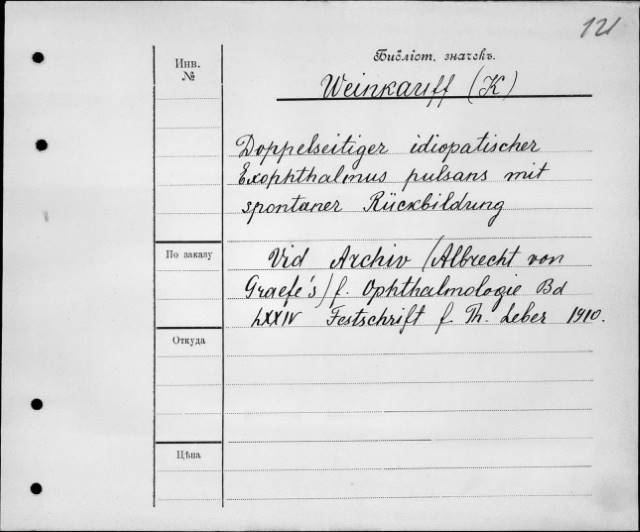 121
Инв.
№
Библіот. значекъ.
Weinkauff (K)
Doppelseitiger idiopatischer
Exophthalmus pulsans mit
spontaner Rückbildung
По заказу
Vid Archiv (Albrecht von
Graefe's) f. Ophthalmologie Bd
LXXIV Festschrift f. Th. Leber 1910.
Откуда
Цѣна